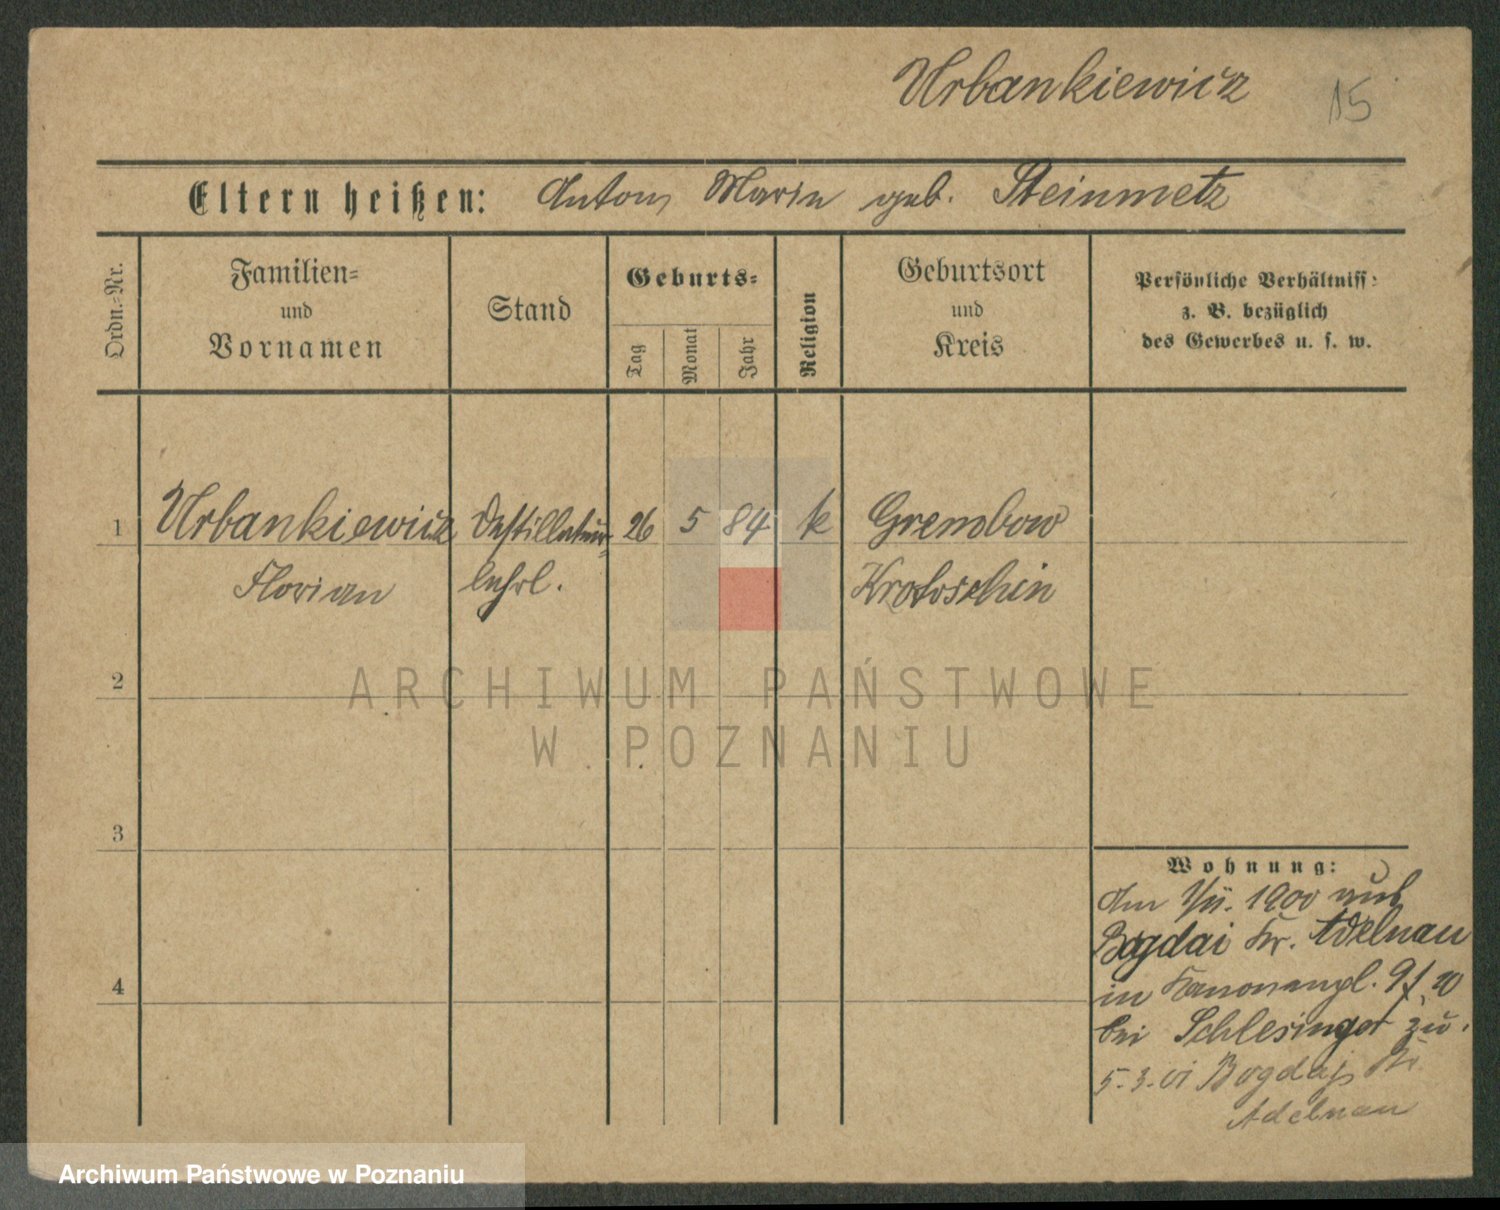 Urbankiewicz
15
Eltern heißen: Anton, Marie geb. Steinmetz
Ordn.-Nr.
Familien-
und
Vornamen
Stand
Geburts-
Tag
Monat
Jahr
Religion
Geburtsort
und
Kreis
Persönliche Verhältniss:
z. B. bezüglich
des Gewerbes u. s. w.
1 Urbankiewicz Destillateur- 26 5 84 k Grembow
Florian lehrl. Krotoschin
2
3
4
Wohnung:
Am 1900 aus
Bogdai Kr. Adelnau
in
bei Schlesinger zu.
5.3.01 Bogdaj Kr
Adelnau
ARCHIWUM PAŃSTWOWE
W POZNANIU
Archiwum Państwowe w Poznaniu